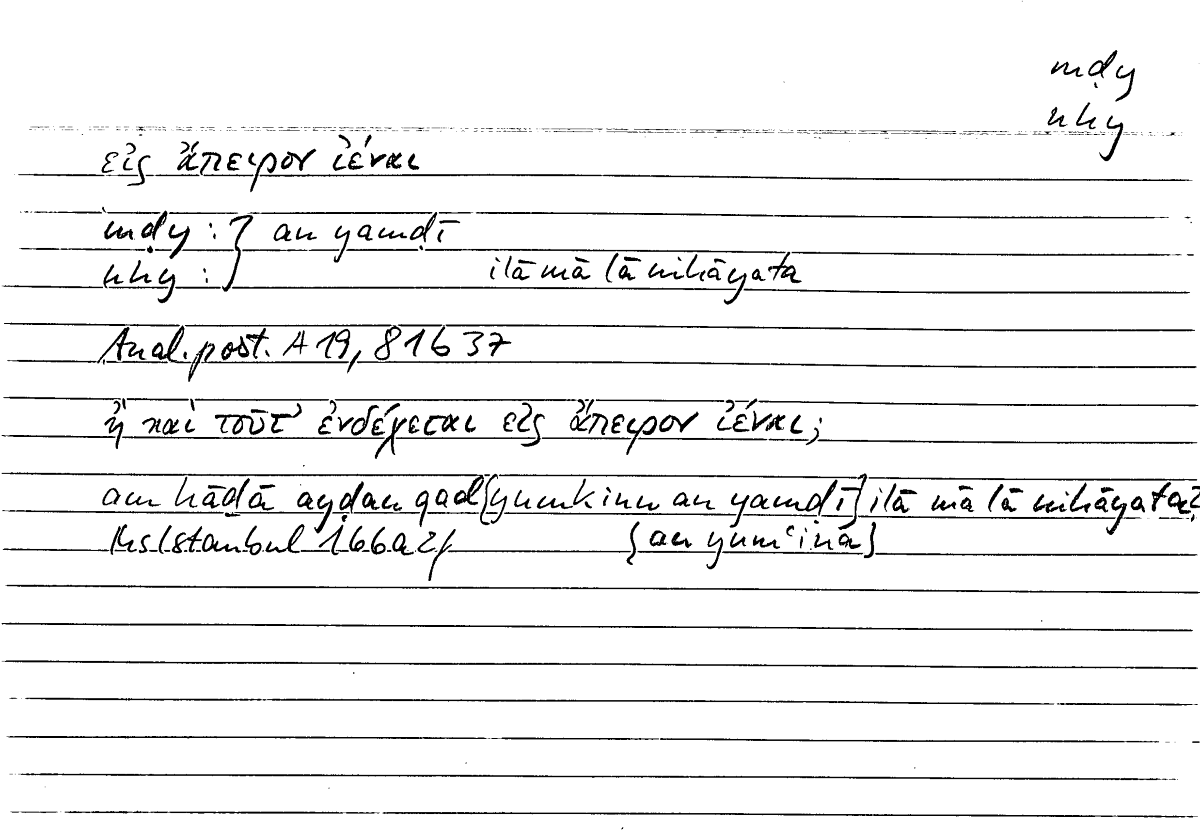 mḍy
nhy
εἰς ἄπειρον ἰέναι
mḍy : } an yamḍī
nhy : } ilā mā lā nihāyata
Anal. post. A 19, 81 b 37
ἢ καὶ τοῦτ' ἐνδέχεται εἰς ἄπειρον ἰέναι;
am hāḏā ayḍan qad {yumkinu an yamḍī} ilā mā lā nihāyata?
Hs Istanbul 166a2/ {an yumʿina}